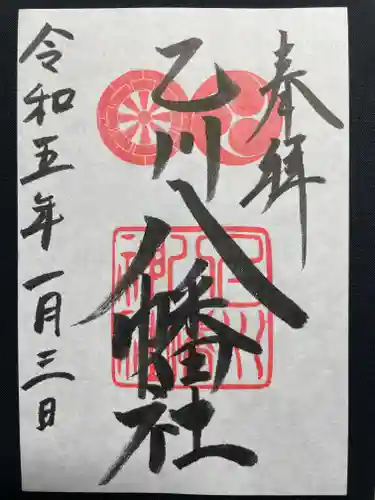 奉拝
乙川八幡社
令和五年一月三日